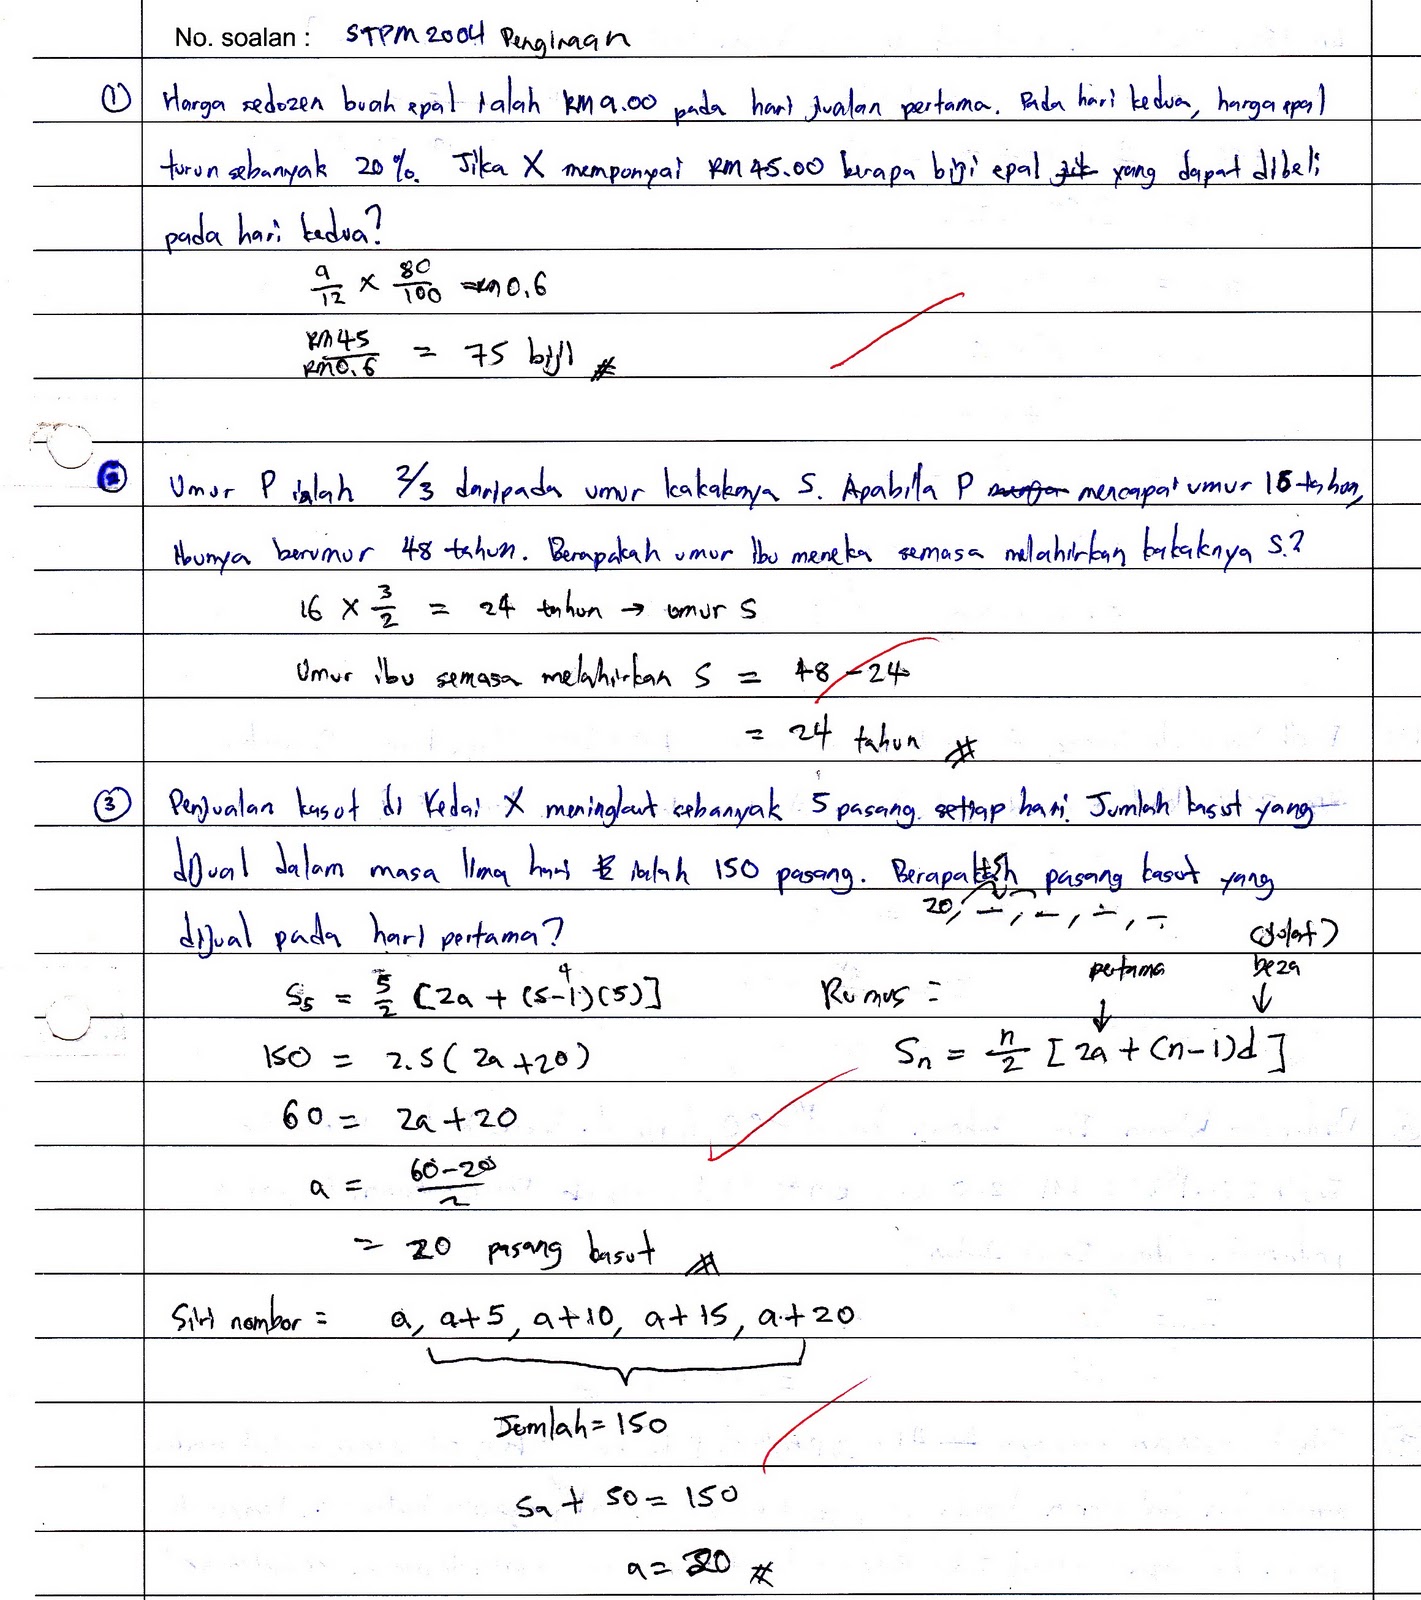 No. soalan : STPM 2004 Pengiraan
① Harga sedozen buah epal ialah RM 9.00 pada hari jualan pertama. Pada hari kedua, harga epal
turun sebanyak 20%. Jika X mempunyai RM 45.00 berapa biji epal yang dapat dibeli
pada hari kedua?
9/12 × 80/100 = RM 0.6
RM45/RM0.6 = 75 biji #
Umur P ialah 2/3 daripada umur kakaknya S. Apabila P mencapai umur 16 tahun,
Ibunya berumur 48 tahun. Berapakah umur ibu mereka semasa melahirkan kakaknya S.?
16 × 3/2 = 24 tahun → umur S
Umur ibu semasa melahirkan S = 48 - 24
= 24 tahun #
③ Penjualan kasut di Kedai X meningkat sebanyak 5 pasang setiap hari. Jumlah kasut yang
dijual dalam masa lima hari ialah 150 pasang. Berapakah pasang kasut yang
20, _, _, _, _
dijual pada hari pertama?
S5 = 5/2 [2a + (5-1)(5)]
4
150 = 2.5(2a+20)
60 = 2a+20
a = 60-20/2
= 20 pasang kasut #
Rumus =
pertama
beza
↓ ↓
Sn = n/2 [2a + (n-1)d]
Siri nombor = a, a+5, a+10, a+15, a+20
Jumlah = 150
5a + 50 = 150
a = 20 #